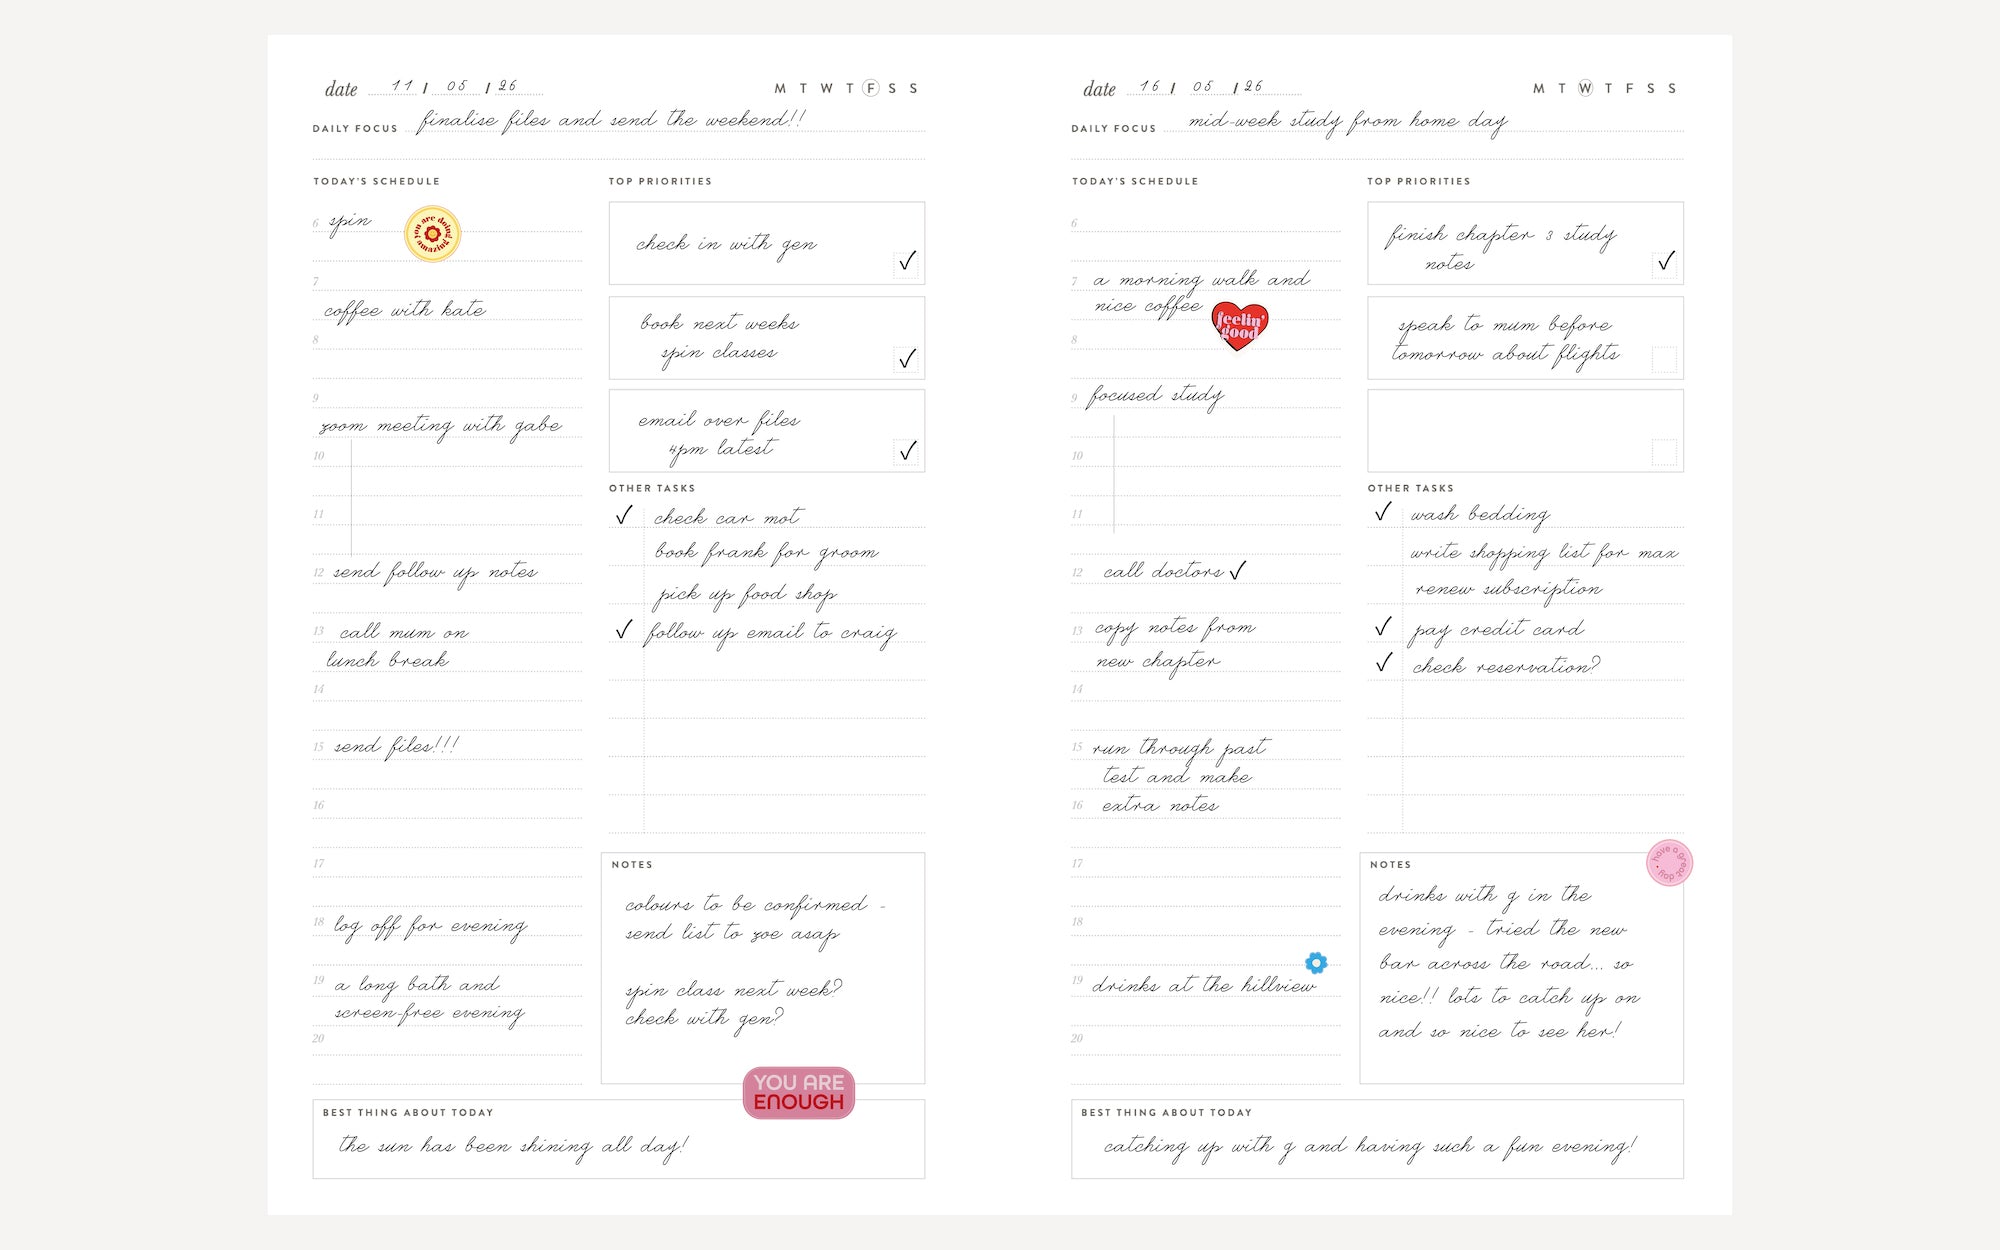 date 11 / 05 / 26
M T W T F S S
DAILY FOCUS finalise files and send the weekend!!
TODAY'S SCHEDULE
6 spin
you are doing amazing
7
coffee with kate
8
9
zoom meeting with gabe
10
11
12 send follow up notes
13 call mum on
lunch break
14
15 send files!!!
16
17
18 log off for evening
19 a long bath and
screen-free evening
20
TOP PRIORITIES
check in with gen ✓
book next weeks
spin classes ✓
email over files
4pm latest ✓
OTHER TASKS
✓ check car mot
book frank for groom
pick up food shop
✓ follow up email to craig
NOTES
colours to be confirmed -
send list to zoe asap
spin class next week?
check with gen?
YOU ARE
ENOUGH
BEST THING ABOUT TODAY
the sun has been shining all day!
date 16 / 05 / 26
M T W T F S S
DAILY FOCUS mid-week study from home day
TODAY'S SCHEDULE
6
7 a morning walk and
nice coffee
feelin'
good
8
9 focused study
10
11
12 call doctors ✓
13 copy notes from
new chapter
14
15 run through past
test and make
16 extra notes
17
18
19 drinks at the hillview
20
TOP PRIORITIES
finish chapter 3 study
notes ✓
speak to mum before
tomorrow about flights
OTHER TASKS
✓ wash bedding
write shopping list for max
renew subscription
✓ pay credit card
✓ check reservation?
NOTES
have a great day
drinks with g in the
evening - tried the new
bar across the road... so
nice!! lots to catch up on
and so nice to see her!
BEST THING ABOUT TODAY
catching up with g and having such a fun evening!